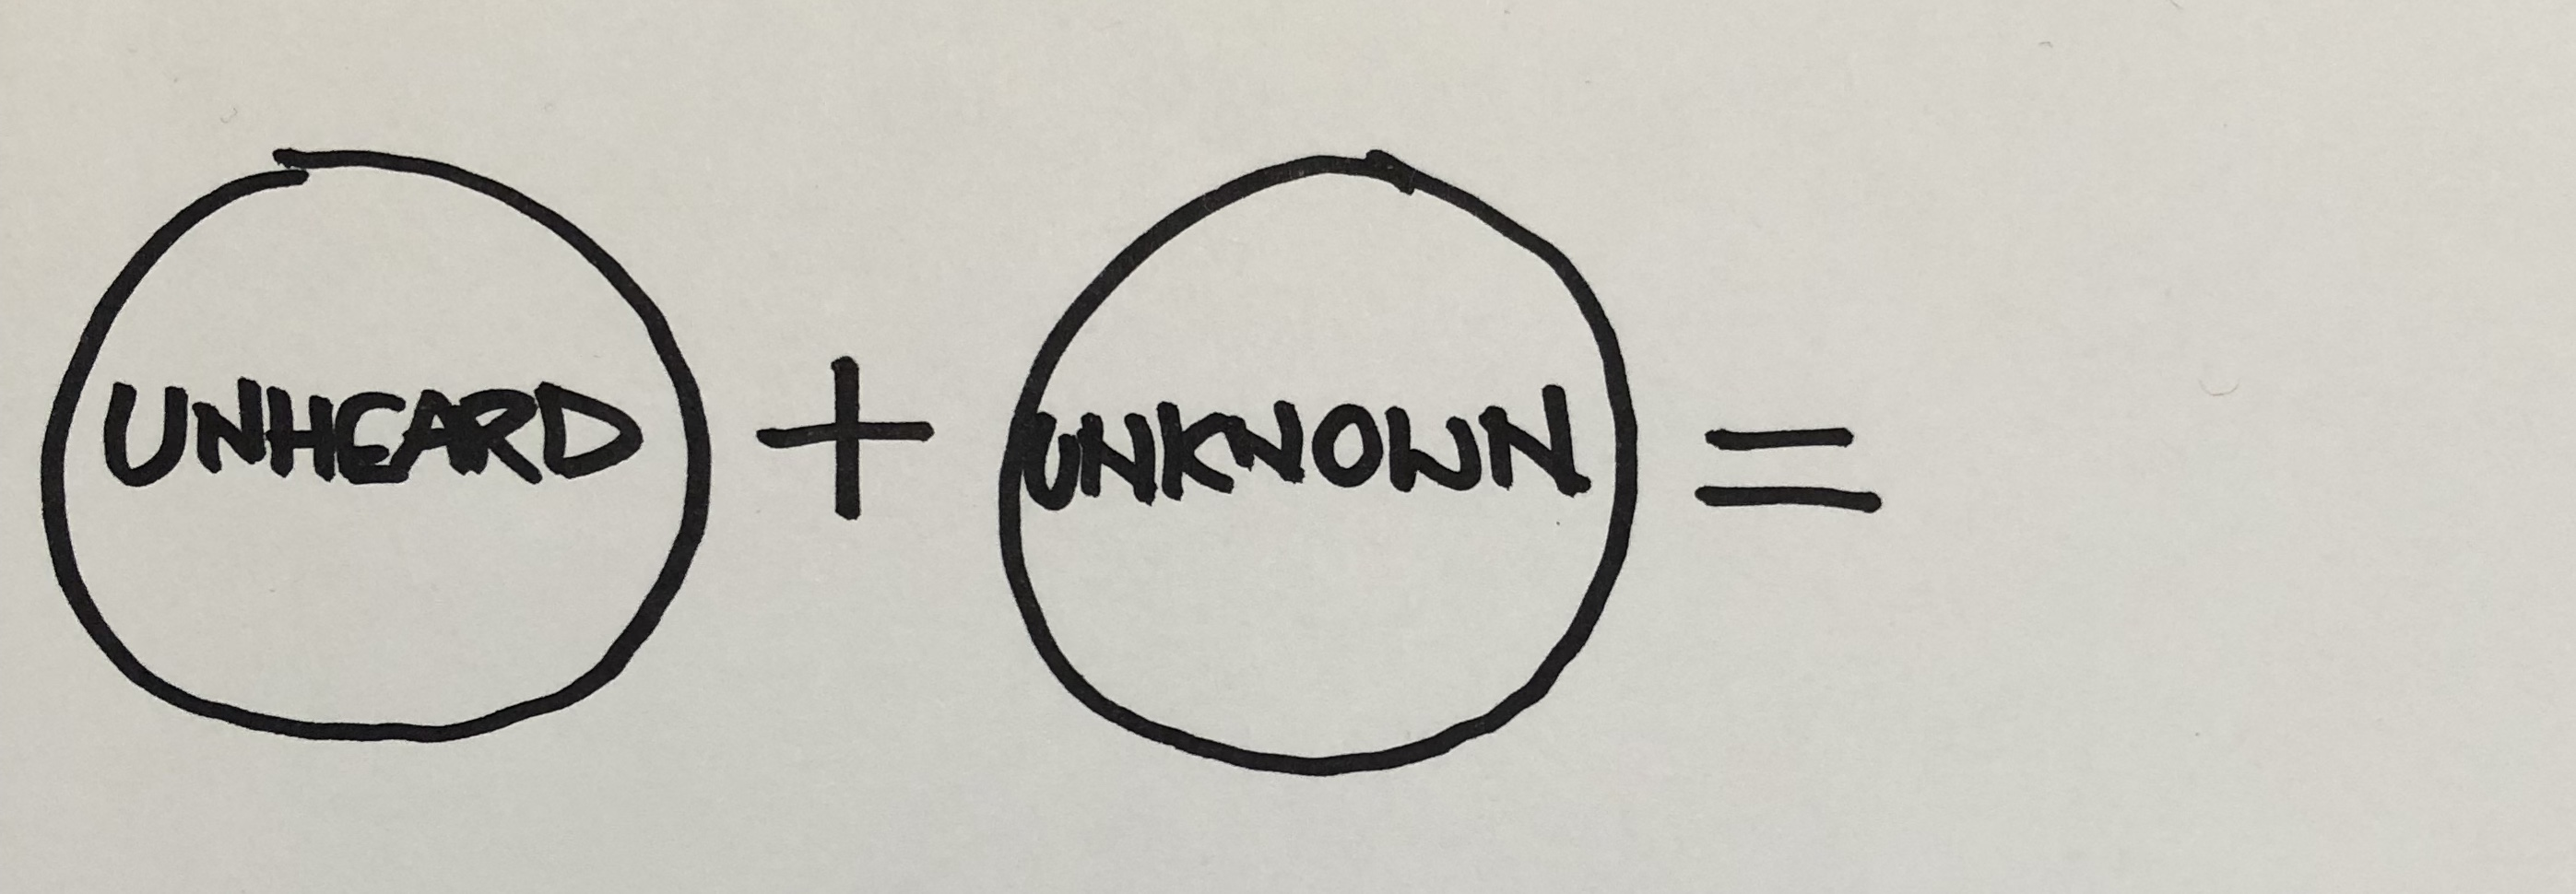 UNHEARD + UNKNOWN =